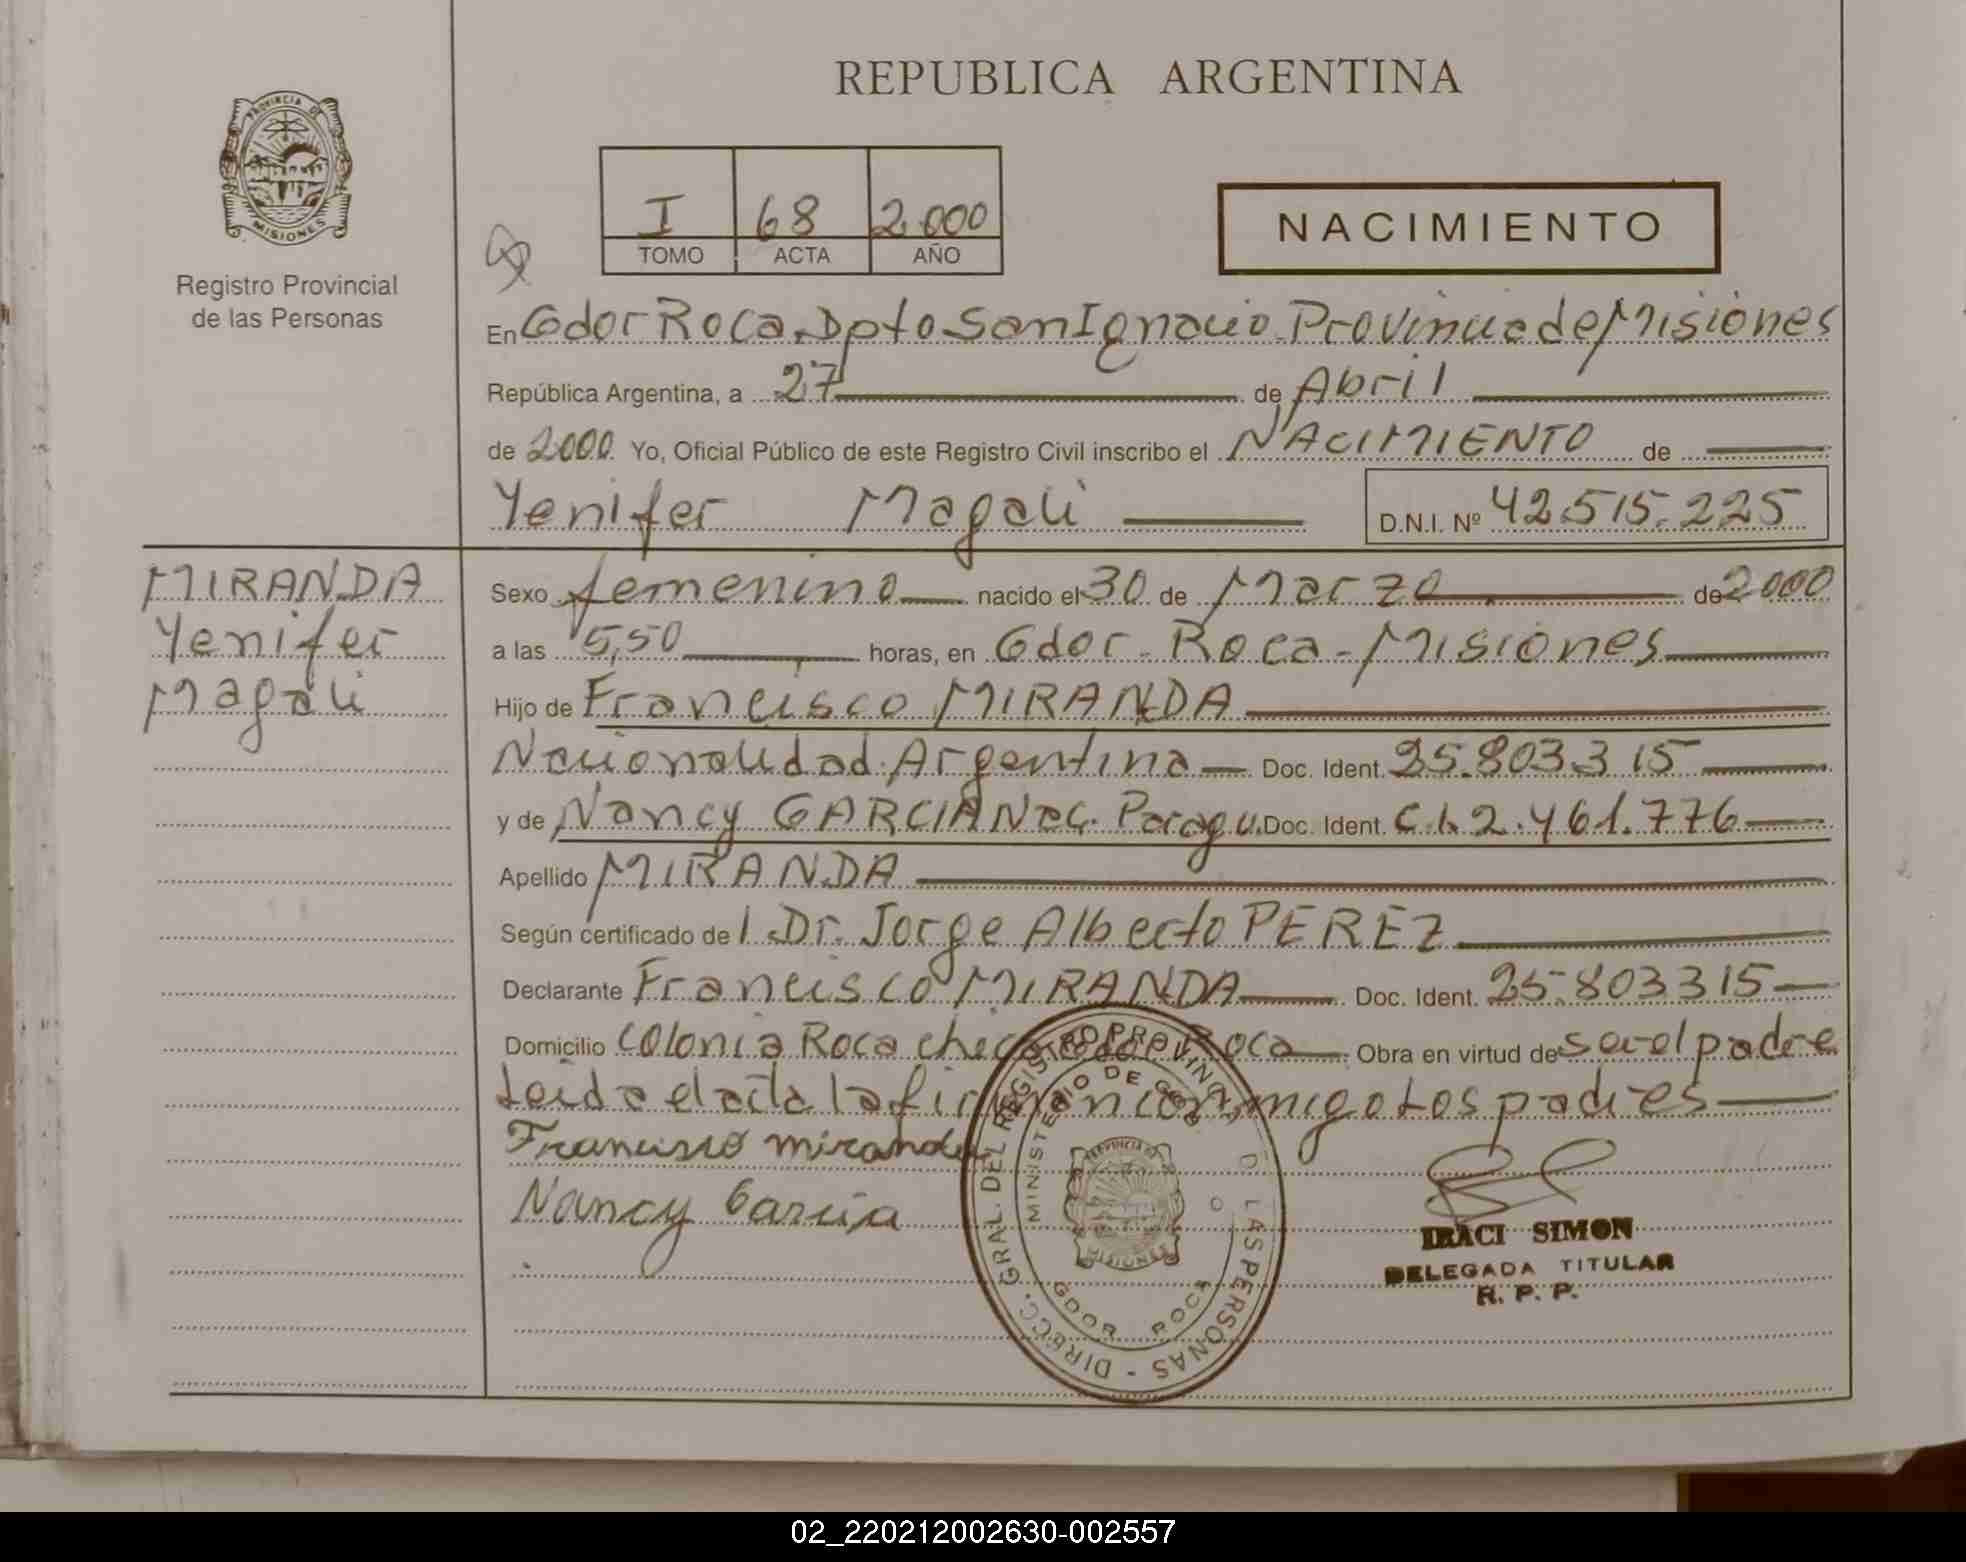 REPUBLICA ARGENTINA
PROVINCIA DE
MISIONES
Registro Provincial
de las Personas
I 68 2.000
TOMO ACTA AÑO
NACIMIENTO
En Gdor Roca. Dpto San Ignacio. Provincia de Misiones
República Argentina, a 27 de Abril
de 2000 Yo, Oficial Público de este Registro Civil inscribo el NACIMIENTO de
Yenifer Magali D.N.I. Nº 42.515.225
MIRANDA
Yenifer
Magali
Sexo femenino nacido el 30 de Marzo de 2000
a las 5,50 horas, en Gdor - Roca - Misiones
Hijo de Francisco MIRANDA
Nacionalidad Argentina Doc. Ident. 25.803.315
y de Nancy GARCIA Nac. Paragu. Doc. Ident. C.I. 2.461.776
Apellido MIRANDA
Según certificado de l Dr. Jorge Alberto PEREZ
Declarante Francisco MIRANDA Doc. Ident. 25.803315
Domicilio Colonia Roca chica Gdor Roca Obra en virtud de ser el padre
Leida el acta la firman conmigo Los padres
Francisco miranda
Nancy Garcia
DIRECC. GRAL. DEL REGISTRO PROVINCIAL D LAS PERSONAS -
MINISTERIO DE GOB
PROVINCIA DE
MISIONES
GDOR ROCA
IRACI SIMON
DELEGADA TITULAR
R. P. P.
02_220212002630-002557